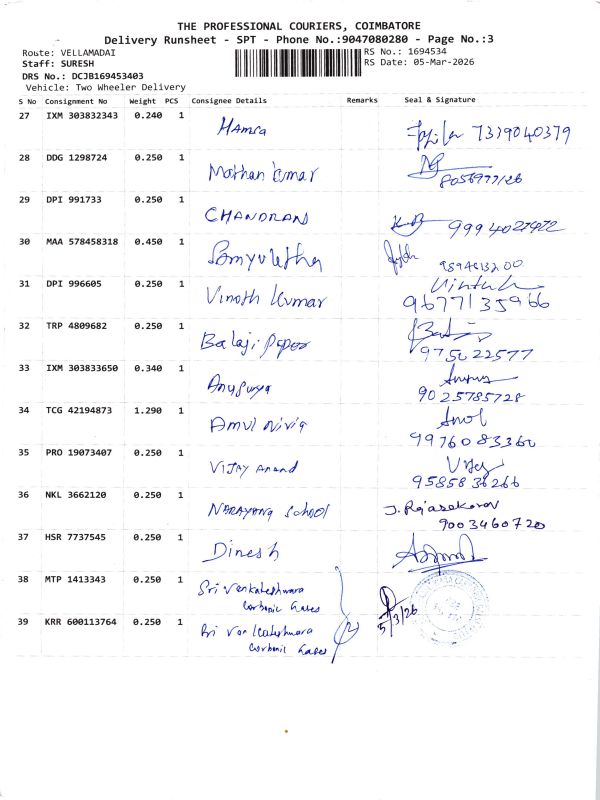 THE PROFESSIONAL COURIERS, COIMBATORE
Delivery Runsheet - SPT - Phone No.:9047080280 - Page No.:3
Route: VELLAMADAI RS No.: 1694534
Staff: SURESH RS Date: 05-Mar-2026
DRS No.: DCJB169453403
Vehicle: Two Wheeler Delivery
S No Consignment No Weight PCS Consignee Details Remarks Seal & Signature
27 IXM 303832343 0.240 1 Hamsa 7339040379
28 DDG 1298724 0.250 1 Mathan kumar
29 DPI 991733 0.250 1 CHANDRAN
30 MAA 578458318 0.450 1
31 DPI 996605 0.250 1 Vinoth kumar 9677135966
32 TRP 4809682 0.250 1 Balaji 975022577
33 IXM 303833650 0.340 1 Anusurya
9025785728
34 TCG 42194873 1.290 1 Amul
9976083360
35 PRO 19073407 0.250 1 Vijay Anand Vijay
9585836266
36 NKL 3662120 0.250 1 Narayana School J. Rajasekaran
9003460720
37 HSR 7737545 0.250 1 Dinesh
38 MTP 1413343 0.250 1 Sri Venkateshwara
Carbonic Gases
5/3/26
39 KRR 600113764 0.250 1 Sri Venkateshwara
Carbonic Gases
(2)